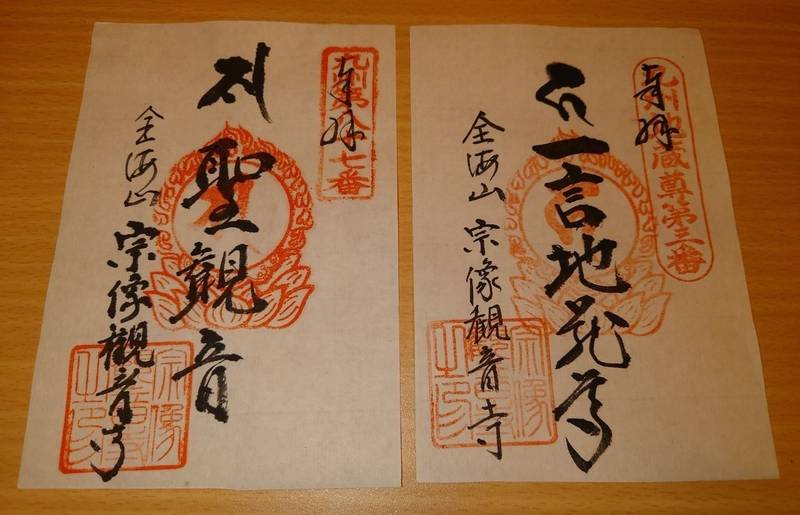 奉拝
九州第八七番
聖観音
金海山 宗像観音寺
奉拝
九州地蔵尊第三番
一言地蔵尊
金海山 宗像観音寺